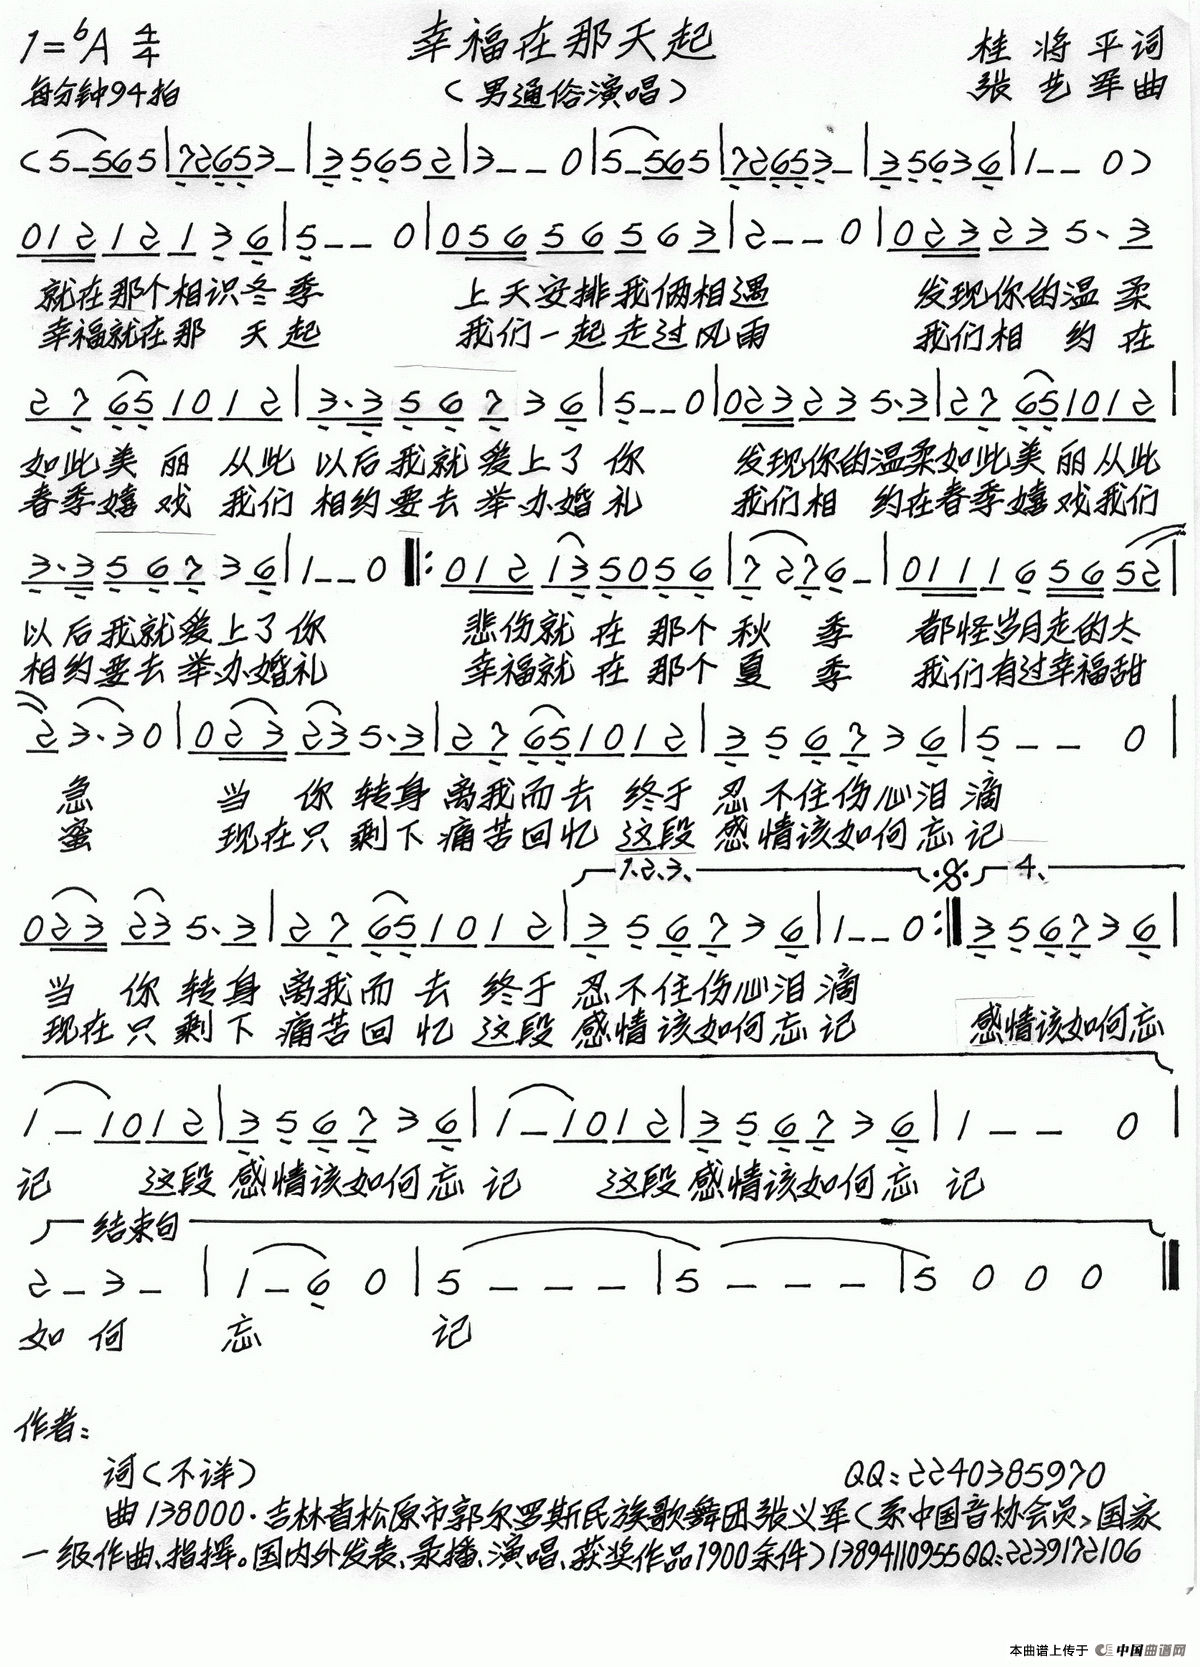 1=ᵇA 4/4 幸福在那天起 桂将平词
每分钟94拍 (男通俗演唱) 张艺军曲
(5-565|72653-|35652|3--0|5-565|72653-|35636|1--0)
01212136|5--0|05656563|2--0|023235·3
就在那个相识冬季 上天安排我俩相遇 发现你的温柔
幸福就在那天起 我们一起走过风雨 我们相约在
27651012|3·356736|5--0|023235·3|27651012|
如此美丽 从此以后我就爱上了你 发现你的温柔如此美丽从此
春季嬉戏 我们相约要去举办婚礼 我们相约在春季嬉戏我们
3·356736|1--0‖:012135056|7276-|011165652|
以后我就爱上了你 悲伤就在那个秋季 都怪岁月走的太
相约要去举办婚礼 幸福就在那个夏季 我们有过幸福甜
23·30|023235·3|27651012|356736|5--0|
急 当你转身离我而去 终于忍不住伤心泪滴
蜜 现在只剩下痛苦回忆 这段感情该如何忘记
1.2.3. 4.
023235·3|27651012|356736|1--0:‖356736|
当你转身离我而去 终于忍不住伤心泪滴
现在只剩下痛苦回忆 这段感情该如何忘记 感情该如何忘
1-1012|356736|1-1012|356736|1--0|
记 这段感情该如何忘记 这段感情该如何忘记
结束句
2-3-|1-60|5---|5---|5000‖
如何忘记
作者:
词(不详) QQ:2240385970
曲138000.吉林省松原市郭尔罗斯民族歌舞团张义军(系中国音协会员,国家
一级作曲、指挥。国内外发表、录播、演唱、获奖作品1900余件)13894110955QQ:2239172106
本曲谱上传于 中国曲谱网